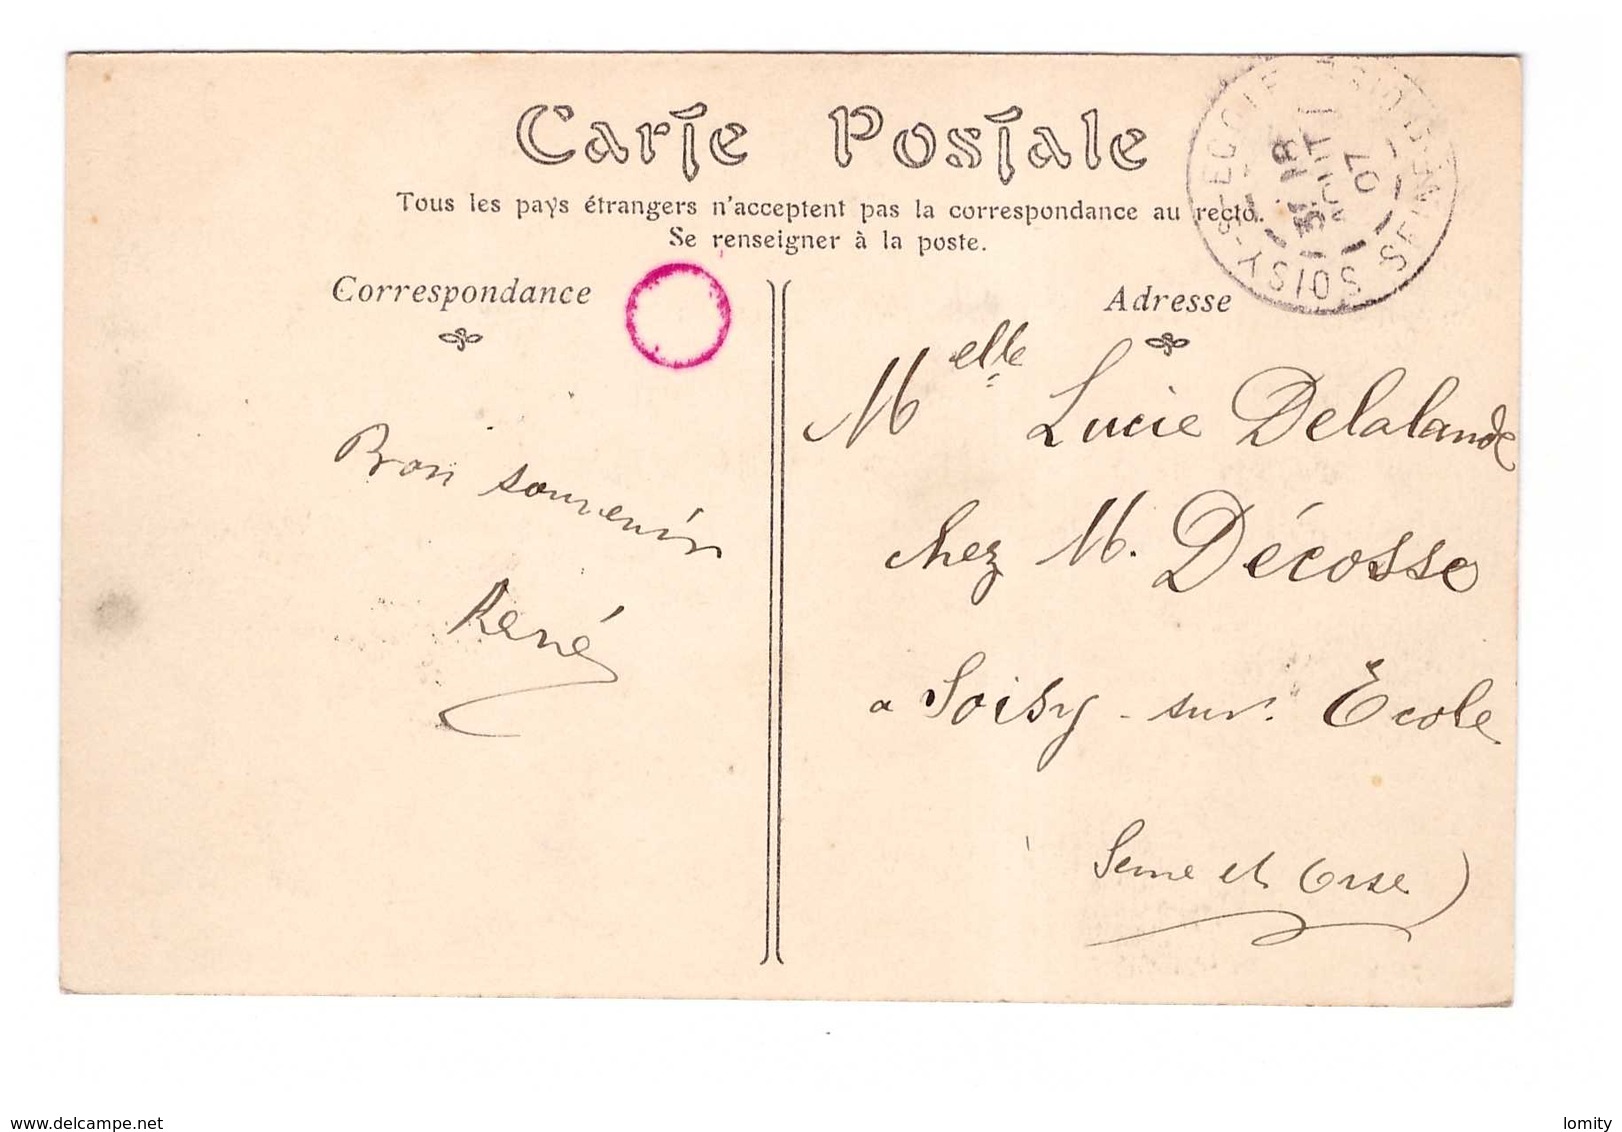 Carte Postale
Tous les pays étrangers n'acceptent pas la correspondance au recto.
Se renseigner à la poste.
Correspondance
Adresse
Bon souvenir
René
Melle Lucie Delalande
chez M. Décosse
a Soisy-sur-Ecole
Seine et Oise)
SOISY-S-ECOLE
SEINE
31
AOUT
07
www.delcampe.net
lomity